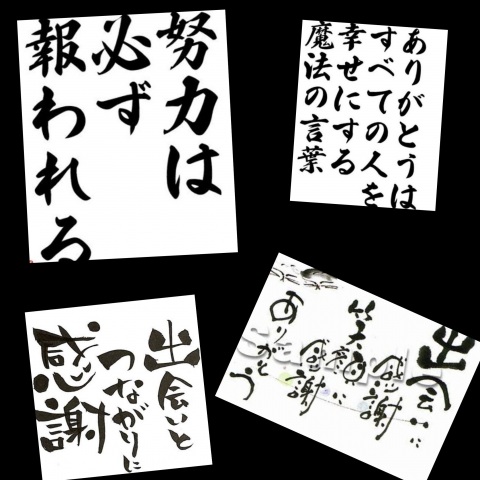 努力は
必ず
報われる
ありがとうは
すべての人を
幸せにする
魔法の言葉
出会いと
つながりに
感謝
出会いに
感謝
笑顔に
感謝
ありがとう
sample